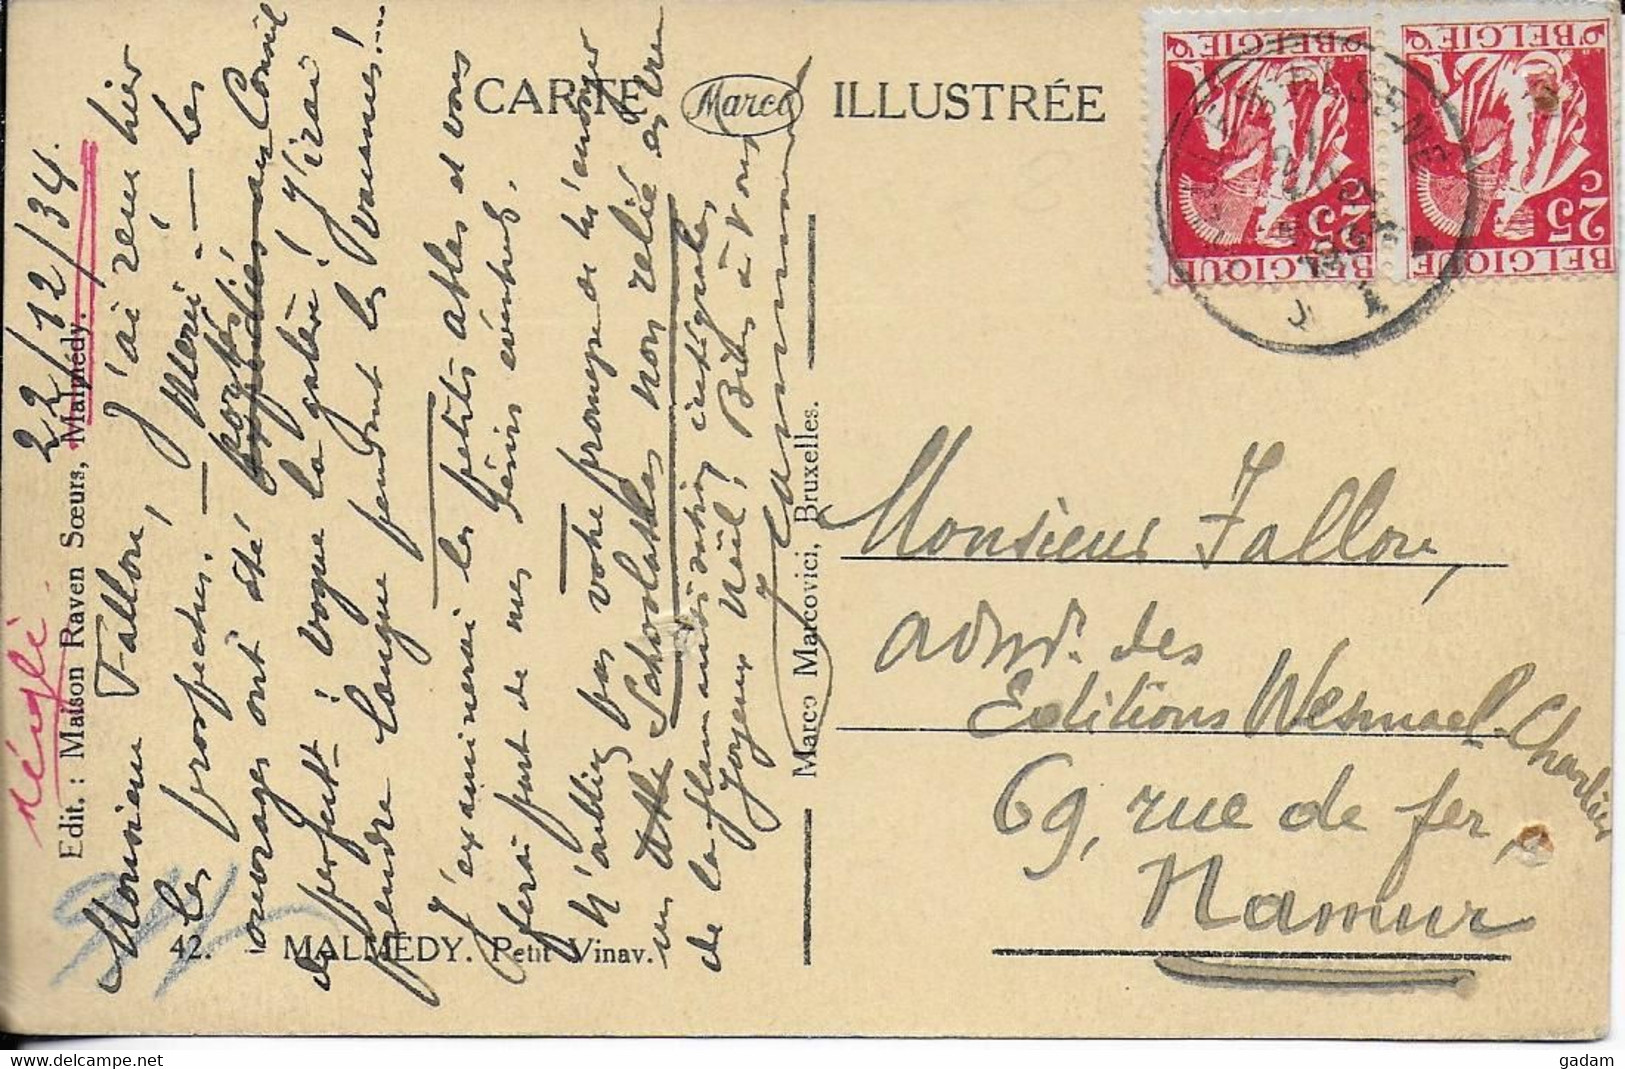 CARTE Marco ILLUSTRÉE
BELGIE BELGIE
25 C 25 C
BELGIQUE BELGIQUE
22/12/34
Monsieur Fallon, J'ai reçu hier
les prospectus. — Merci — Les
ouvrages ont été expédiés au Conseil
de perfectt: vogue la galère! J'irai
pendre langue pendant les vacances...
J'examinerai les petits atlas et vous
ferai part de mes desirs éventuels.
N'oubliez pas votre promesse de m'envoyer
un Atlas Scholatlas non relié en vue
de la flamandisation intégrale.
Joyeux Noël! Bien à vous
Monsieur Fallon,
admr. des
Editions Wesmael-Charlier
69, rue de fer,
Namur
42. - MALMÉDY. Petit Vinav.
Edit. : Maison Raven Sœurs, Malmédy.
Marco Marcovici, Bruxelles.
gadam